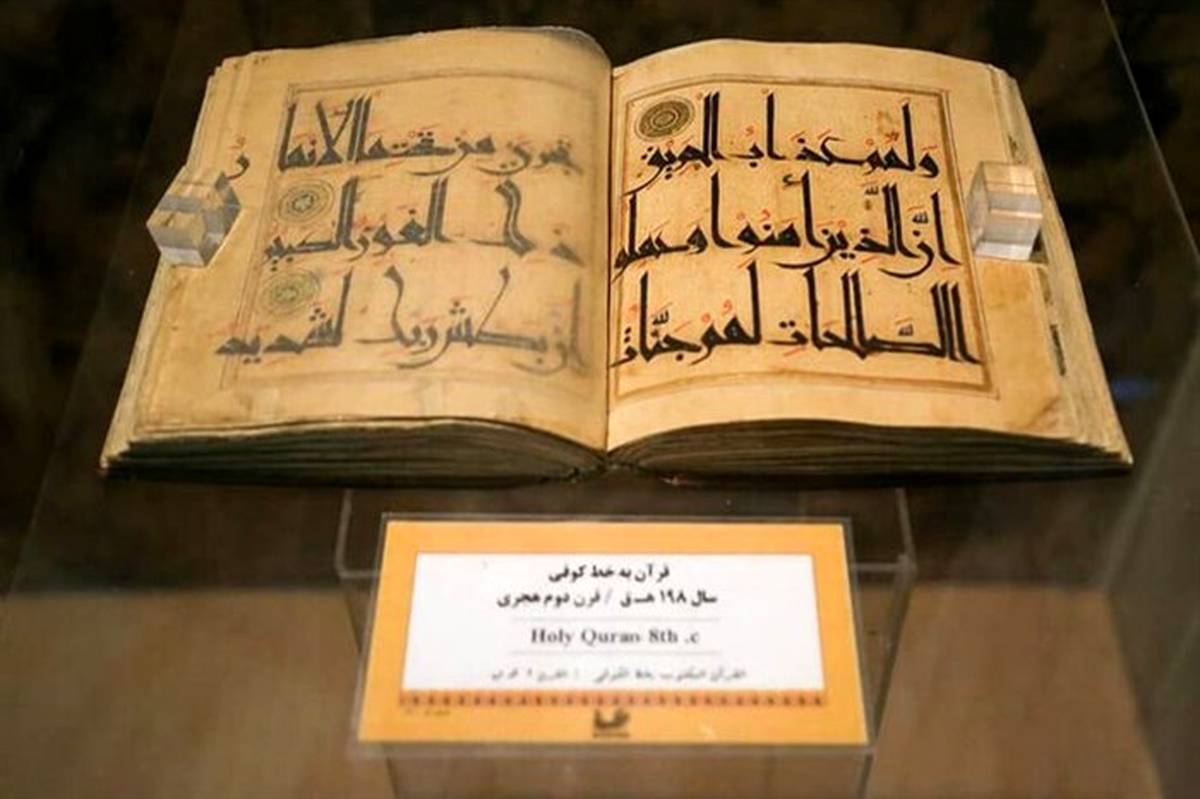 ولهم عذاب الحريق
ان الذين امنوا وعملوا
الصالحات لهم جنات
تجرى من تحتها الانها
ر
ذلك الفوز الكبير
ان بطش ربك لشديد
قرآن به خط کوفی
سال ۱۹۸ هـ ق / قرن دوم هجری
Holy Quran 8th .c
القرآن المکتوب بخط الکوفی / القرن